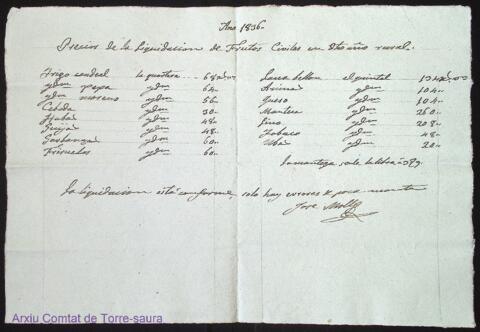 Año 1836.
Precios de la Liquidacion de Frutos Civiles en dho año rural.
Trigo candeal la quartera 68
ydm xexa ydm 64.
ydm moreno ydm 56.
Cebada ydm 30.
Habas ydm 48.
Guijas ydm 48.
Garbanzos ydm 60.
Frisuelos ydm 60.
Lana el quintal
Arina ydm 104.
Queso ydm 104.
Manteca ydm 260.
Lino ydm 208.
Tabaco ydm 48.
Uba ydm 20.
la manteca sale la libra a
La liquidacion está conforme, solo hay errores de poca monta
Jose Moll
Arxiu Comtat de Torre-saura